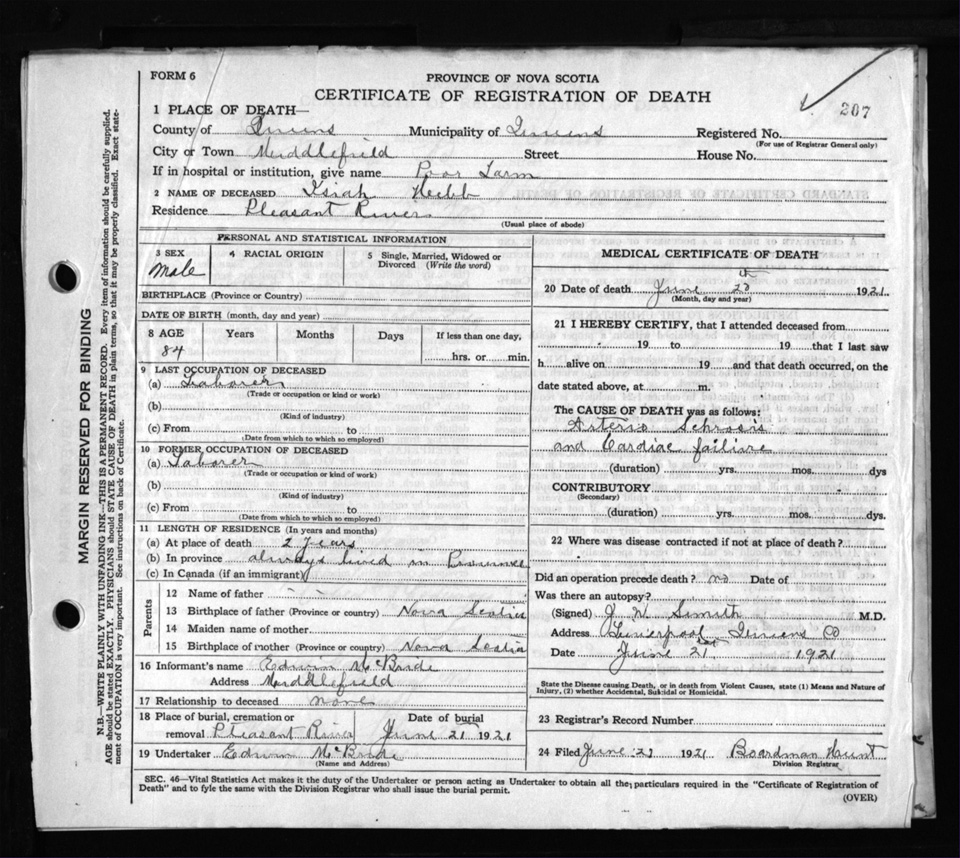 FORM 6
PROVINCE OF NOVA SCOTIA
CERTIFICATE OF REGISTRATION OF DEATH
207
1 PLACE OF DEATH—
County of Queens Municipality of Queens Registered No.
(For use of Registrar General only)
City or Town Middlefield Street House No.
If in hospital or institution, give name Poor Farm
2 NAME OF DECEASED Isiah Hebb
Residence Pleasant River
(Usual place of abode)
PERSONAL AND STATISTICAL INFORMATION
3 SEX Male
4 RACIAL ORIGIN
5 Single, Married, Widowed or Divorced (Write the word)
BIRTHPLACE (Province or Country)
DATE OF BIRTH (month, day and year)
8 AGE Years Months Days If less than one day,
84 hrs. or min.
9 LAST OCCUPATION OF DECEASED
(a) Laborer
(Trade or occupation or kind or work)
(b)
(Kind of industry)
(c) From to
(Date from which to which so employed)
10 FORMER OCCUPATION OF DECEASED
(a) Laborer
(Trade or occupation or kind of work)
(b)
(Kind of industry)
(c) From to
(Date from which to which so employed)
11 LENGTH OF RESIDENCE (In years and months)
(a) At place of death 2 years
(b) In province always lived in Province
(c) In Canada (if an immigrant)
Parents
12 Name of father
13 Birthplace of father (Province or country) Nova Scotia
14 Maiden name of mother
15 Birthplace of mother (Province or country) Nova Scotia
16 Informant's name Edwin McBride
Address Middlefield
17 Relationship to deceased none
18 Place of burial, cremation or removal Pleasant River Date of burial June 21 1921
19 Undertaker Edwin McBride
(Name and Address)
MEDICAL CERTIFICATE OF DEATH
20 Date of death June 20th 1921.
(Month, day and year)
21 I HEREBY CERTIFY, that I attended deceased from
19 to 19 that I last saw
h alive on 19 and that death occurred, on the
date stated above, at m.
The CAUSE OF DEATH was as follows:
Arterio Schrosis
and Cardiac failure
(duration) yrs. mos. dys
CONTRIBUTORY
(Secondary)
(duration) yrs. mos. dys.
22 Where was disease contracted if not at place of death?
Did an operation precede death? no Date of
Was there an autopsy?
(Signed) J. W. Smith M.D.
Address Liverpool Queens Co
Date June 21st 1921
State the Disease causing Death, or in death from Violent Causes, state (1) Means and Nature of
Injury, (2) whether Accidental, Suicidal or Homicidal.
23 Registrar's Record Number
24 Filed June 1921 Boardman Hunt
Division Registrar
SEC. 46—Vital Statistics Act makes it the duty of the Undertaker or person acting as Undertaker to obtain all the particulars required in the "Certificate of Registration of
Death" and to fyle the same with the Division Registrar who shall issue the burial permit.
(OVER)
MARGIN RESERVED FOR BINDING
N.B.—WRITE PLAINLY WITH UNFADING INK—THIS IS A PERMANENT RECORD. Every item of information should be carefully supplied.
AGE should be stated EXACTLY. PHYSICIANS should STATE CAUSE OF DEATH in plain terms, so that it may be properly classified. Exact state-
ment of OCCUPATION is very important. See instructions on back of Certificate.